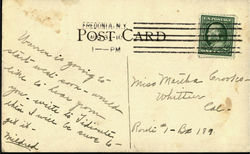 FREDONIA, N.Y.
1—PM
POST CARD
Verna is going to
start west soon - would
like to hear from
you. Write to Titusville
then I will be sure to
get it.
Mildred
Miss Martha Crooks
Whittier
Cal.
Route #1 - Bx 189